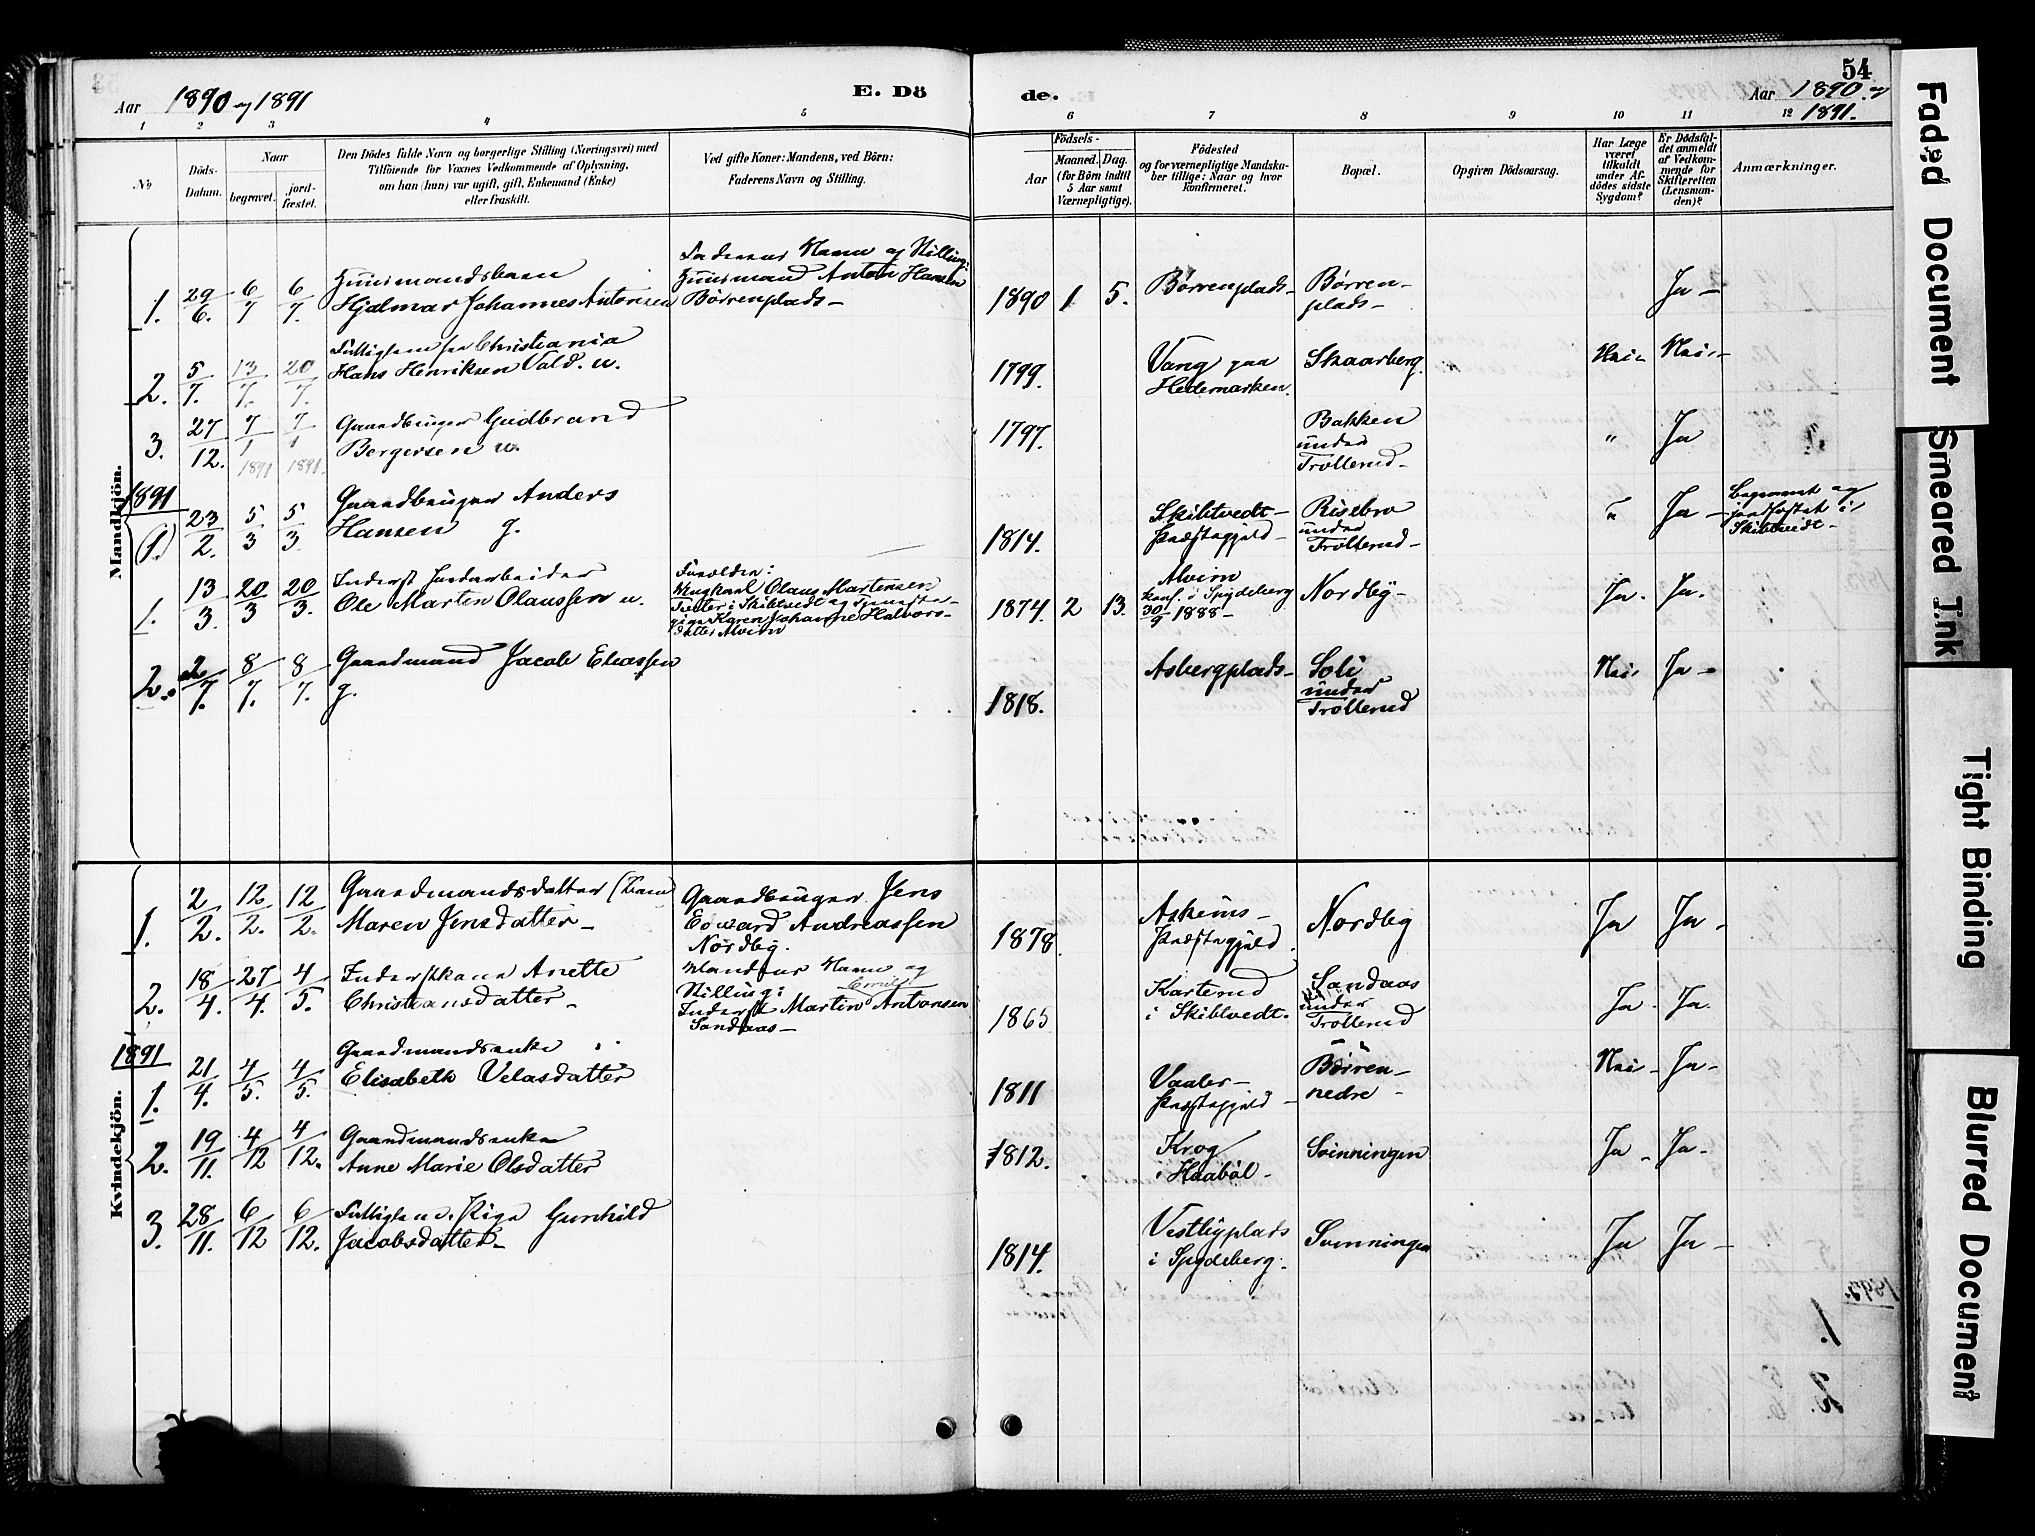 54
Aar 1890 og 1891
E. Dö
de.
Aar 1890 og
1891.
1 2 3 4 5 6 7 8 9 10 11 12
No
Döds-
Datum.
Naar
begravet.
jord-
fæstet.
Den Dödes fulde Navn og borgerlige Stilling (Næringsvei) med
Tilföiende for Voxnes Vedkommende af Oplysning,
om han (hun) var ugift, gift, Enkemand (Enke)
eller fraskilt.
Ved gifte Koner: Mandens, ved Börn:
Faderens Navn og Stilling.
Födsels-
Aar
Maaned.
Dag.
(for Börn indtil
5 Aar samt
Værnepligtige).
Födested
og for værnepligtige Mandska-
ber tillige: Naar og hvor
konfirmeret.
Bopæl.
Opgiven Dödsaarsag.
Har Læge
været
tilkaldt
under Af-
dödes sidste
Sygdom?
Er Dödsfal-
det anmeldt
af Vedkom-
mende for
Skifteretten
(Lensman-
den)?
Anmærkninger.
Mandkjön.
1. 29/6. 6/7 6/7. Huusmandsbarn
Hjalmar Johannes Antonsen
Faderens Navn og Stilling:
Huusmand Anton Hansen
Börrenplads-
1890 1 5. Börrenplads- Börren-
plads- Ja-
2. 5/7. 13/7. 20/7. Fattiglem fra Christiania
Hans Henriksen Vald. u.
1799. Vang paa
Hedemarken. Skaarberg. Nei- Nei-
3. 27/12. 7/1 1891 7/1 1891. Gaardbruger Gudbrand
Bergersen u.
1797. Bakken
under
Tröllerud- " Ja
1891
(1.) 23/2. 5/3 5/3. Gaardbruger Anders
Hansen g.
1814. Skibtvedt-
Præstegjeld- Risebro
under
Tröllerud- " Ja- Begravet og
jordfæstet i
Skibtvedt-
1. 13/3. 20/3 20/3. Inderst Jordarbeider
Ole Martin Olaussen u.
Forældre:
Ungkarl Olaus Martensen
i Skibtvedt og
pige Karen Johanne Halvors-
datter Alvim
1874. 2 13. Alvim
konf. i Spydeberg
30/9 1888- Nordby- Ja. Ja.
2. 2/7. 8/7. 8/7. Gaardmand Jacob Eliassen
g.
1818. Asbergplads- Soli
under
Tröllerud Nei- Ja-
Kvindekjön.
1. 2/2. 12/2. 12/2. Gaardmandsdatter (Barn)
Maren Jensdatter-
Gaardbruger Jens
Edvard Andreassen
Nordby.
1878. Askims-
Præstegjeld. Nordby Ja Ja-
2. 18/4. 27/4. 4/5. Inderstkone Anette
Christiansdatter-
Mandens Navn og
Stilling:
Inderst Martin Antonsen
Sandaas-
1865 Karterud
i Skibtvedt. Sandaas
under
Tröllerud Ja. Ja.
1891
1. 21/4. 4/5. 4/5. Gaardmandsenke
Elisabeth Velasdatter
1811 Vaaler-
Præstegjeld- Böiren-
nedre- Nei- Ja-
2. 19/11. 4/12 4/12. Gaardmandsenke
Anne Marie Olsdatter
1812. Krog
i Haaböl- Svinningen Ja- Ja-
3. 28/11. 6/12 6/12. Fattiglem, Pige Gunhild
Jacobsdatter-
1814. Vestbyplads
i Spydeberg. Svinningen Ja Ja-
Faded Document
Smeared Ink
Tight Binding
Blurred Document